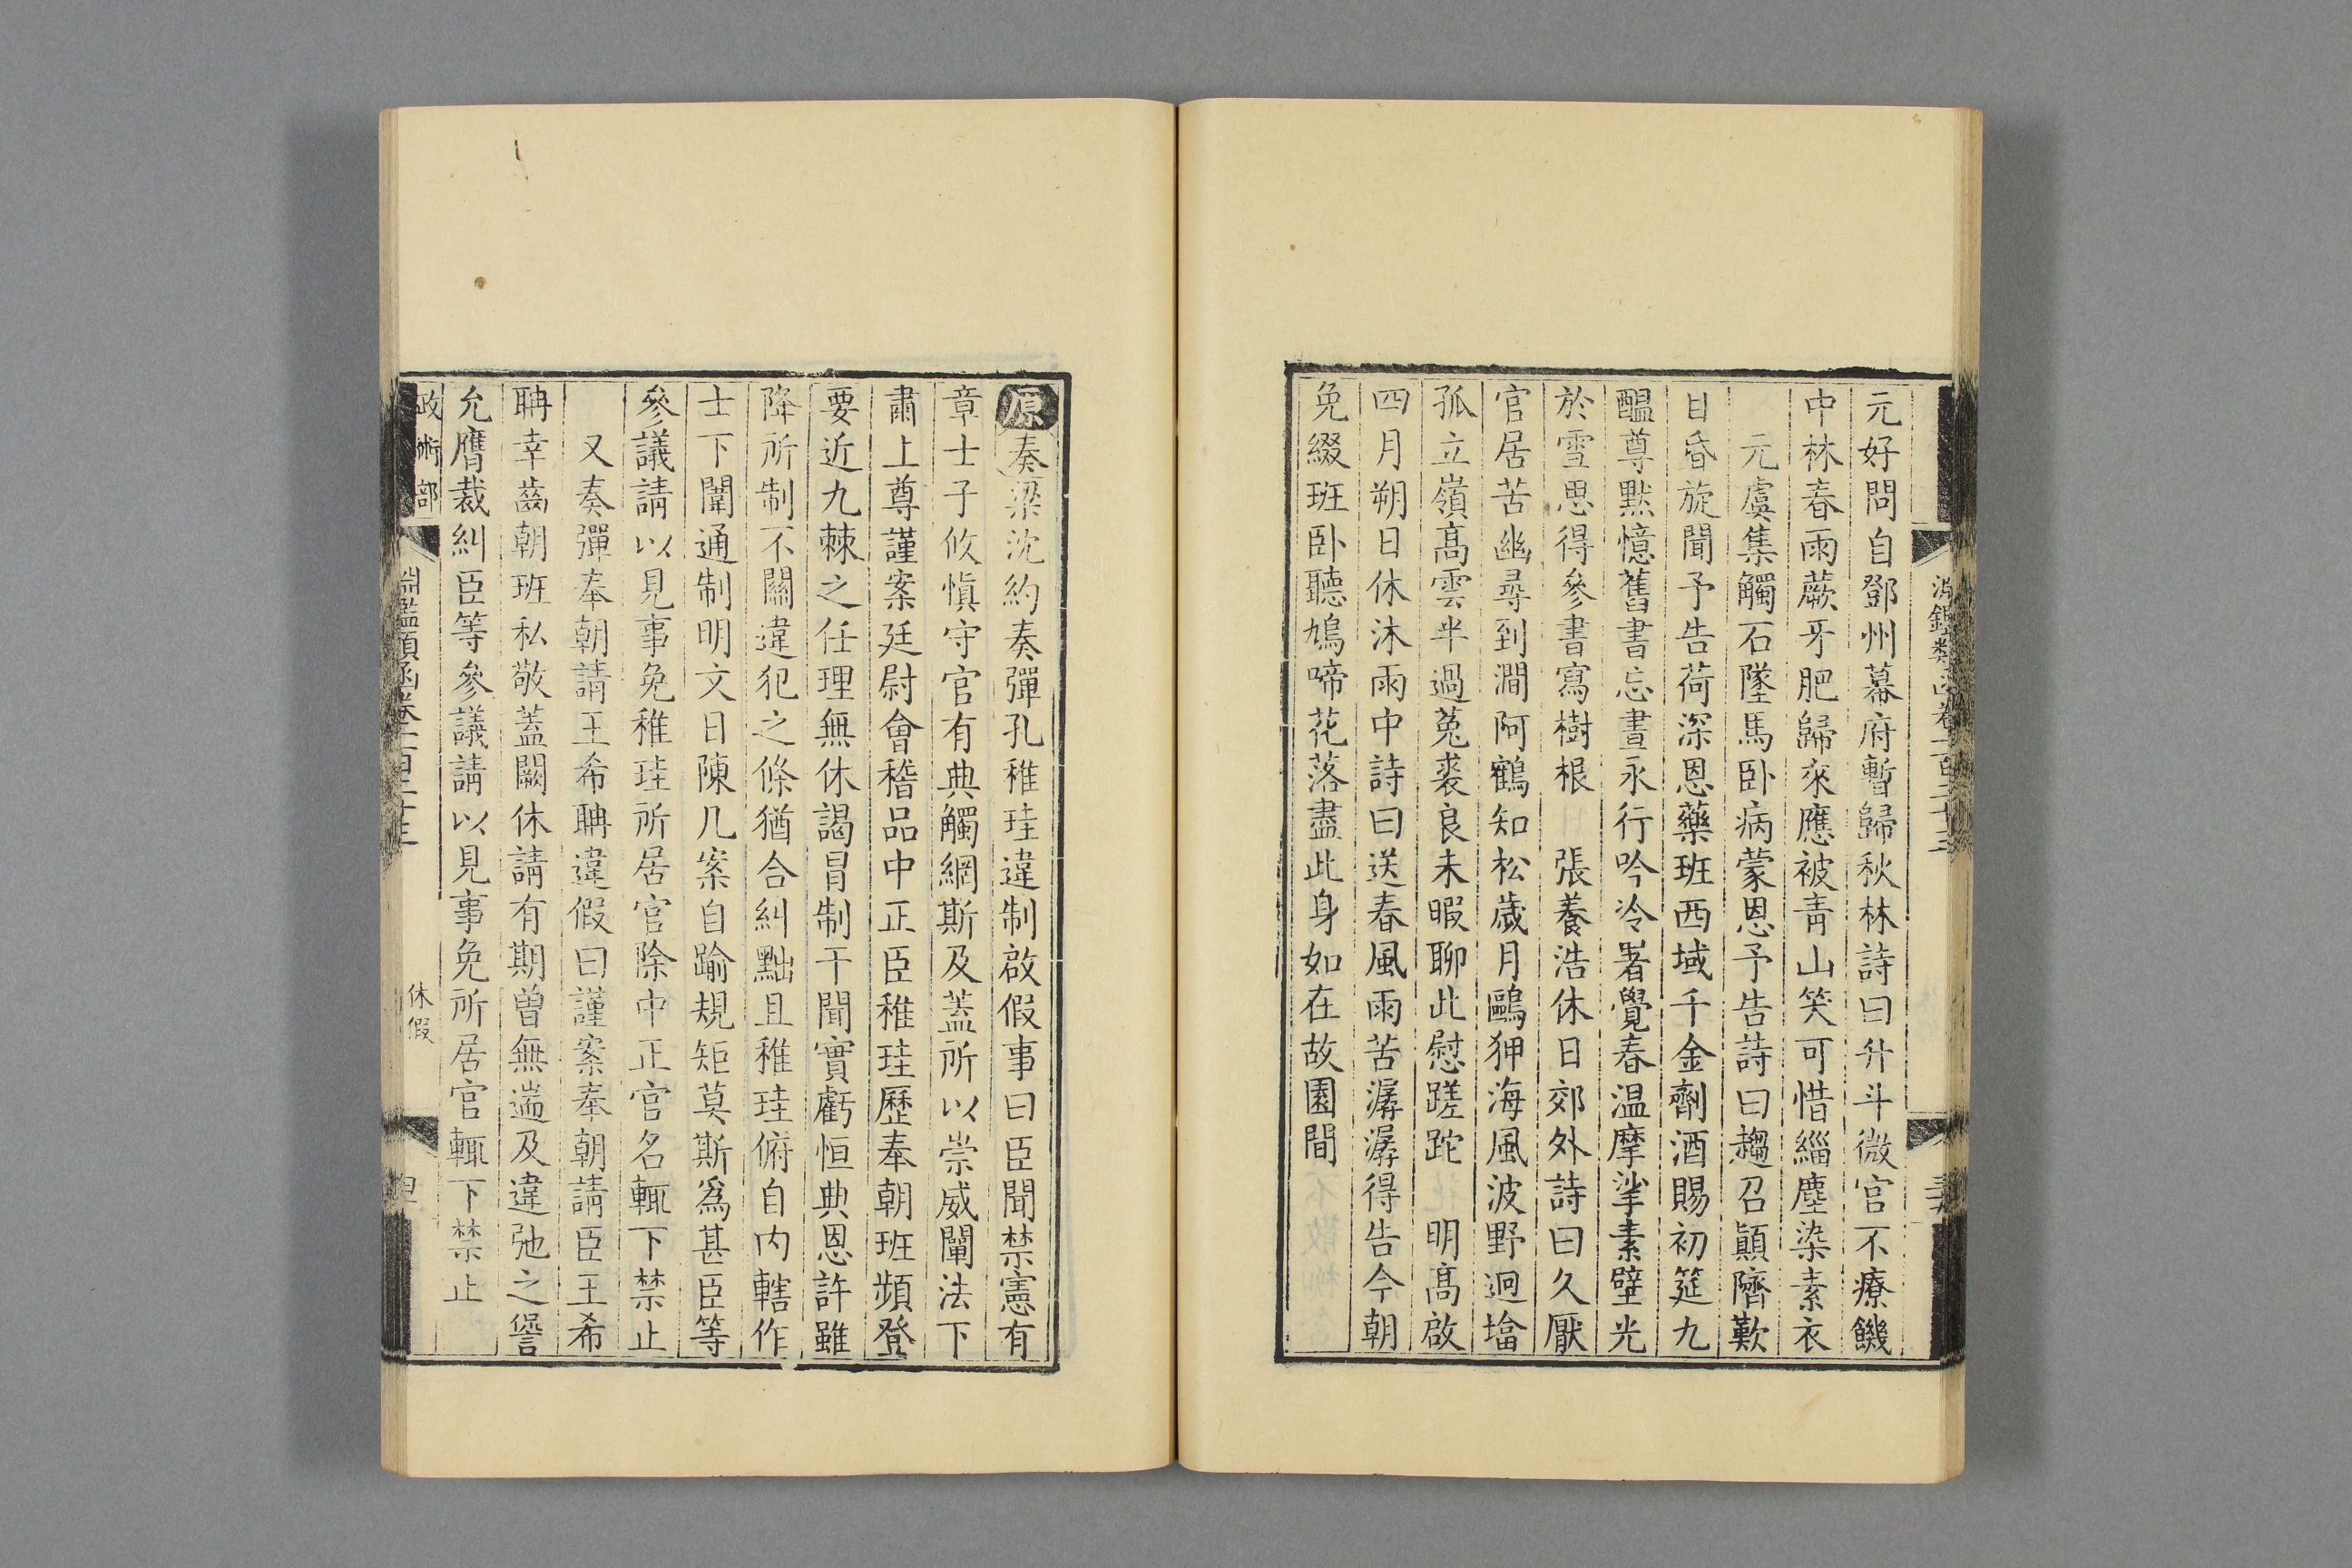 元好問自鄧州幕府暫歸秋林詩曰升斗微官不療饑
中林春雨蕨牙肥歸來應被青山笑可惜緇塵染素衣
元虞集觸石墜馬卧病蒙恩予告詩曰趨召顛隮歎
日昏旋聞予告荷深恩藥班西域千金劑酒賜初筵九
醞尊黙憶舊書忘晝永行吟冷署覺春温摩挲素壁光
於雪思得參書寫樹根 張養浩休日郊外詩曰久厭
官居苦幽尋到澗阿鶴知松歲月鷗狎海風波野迥墖
孤立嶺髙雲半過菟裘良未暇聊此慰蹉跎 明髙啟
四月朔日休沐雨中詩曰送春風雨苦潺潺得告今朝
免綴班卧聽鳩啼花落盡此身如在故園間
原奏梁沈約奏彈孔稚珪違制啟假事曰臣聞禁憲有
章士子攸愼守官有典觸網斯及蓋所以崇威闡法下
肅上尊謹案廷尉會稽品中正臣稚珪歷奉朝班頻登
要近九棘之任理無休謁冒制干聞實虧恒典恩許雖
降所制不關違犯之條猶合糾黜且稚珪俯自内轄作
士下闈通制明文日陳几案自踰規矩莫斯爲甚臣等
參議請以見事免稚珪所居官除中正官名輒下禁止
又奏彈奉朝請王希聃違假曰謹案奉朝請臣王希
聃幸齒朝班私敬蓋闕休請有期曾無遄及違弛之諐
允膺裁糾臣等參議請以見事免所居官輒下禁止
政術部 淵鑑類函卷 休假